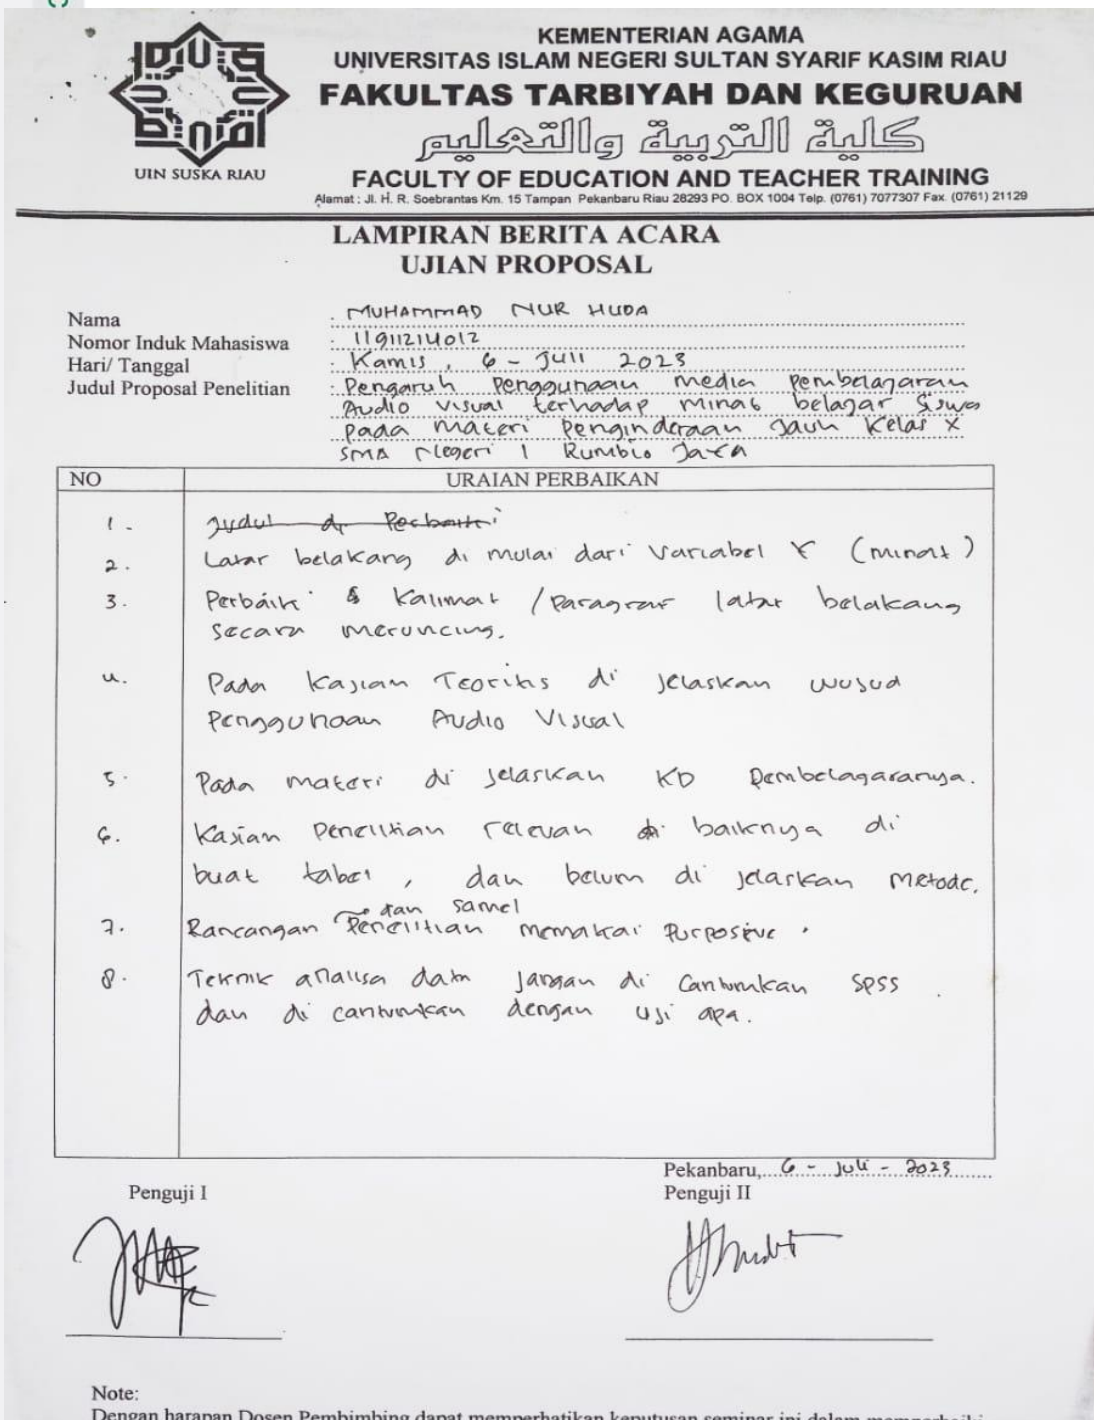 UIN SUSKA RIAU
KEMENTERIAN AGAMA
UNIVERSITAS ISLAM NEGERI SULTAN SYARIF KASIM RIAU
FAKULTAS TARBIYAH DAN KEGURUAN
كلية التربية والتعليم
FACULTY OF EDUCATION AND TEACHER TRAINING
Alamat : Jl. H. R. Soebrantas Km. 15 Tampan Pekanbaru Riau 28293 PO. BOX 1004 Telp. (0761) 7077307 Fax. (0761) 21129
LAMPIRAN BERITA ACARA
UJIAN PROPOSAL
Nama : MUHAMMAD NUR HUDA
Nomor Induk Mahasiswa : 11911214012
Hari/ Tanggal : Kamis, 6 - Juli 2023
Judul Proposal Penelitian : Pengaruh Penggunaan media Pembelajaran
Audio visual terhadap minat belajar Siswa
pada materi Penginderaan Jauh Kelas X
SMA Negeri 1 Rumbio Jaya
NO URAIAN PERBAIKAN
1. Judul di Perbaiki
2. Latar belakang di mulai dari Variabel Y (minat)
3. Perbaiki Kalimat / Paragraf latar belakang
secara meruncing.
4. Pada Kajian Teoritis di jelaskan wujud
Penggunaan Audio Visual
5. Pada materi di jelaskan KD Pembelajaranya.
6. Kajian Penelitian relevan baiknya di
buat tabel, dan belum di jelaskan metode.
7. Rancangan Penelitian dan samel memakai Purposive.
8. Teknik analisa data jangan di Cantumkan SPSS
dan di cantumkan dengan uji apa.
Pekanbaru, 6 - Juli - 2023
Penguji I Penguji II
Note:
Dengan harapan Dosen Pembimbing dapat memperhatikan keputusan seminar ini dalam memperbaiki